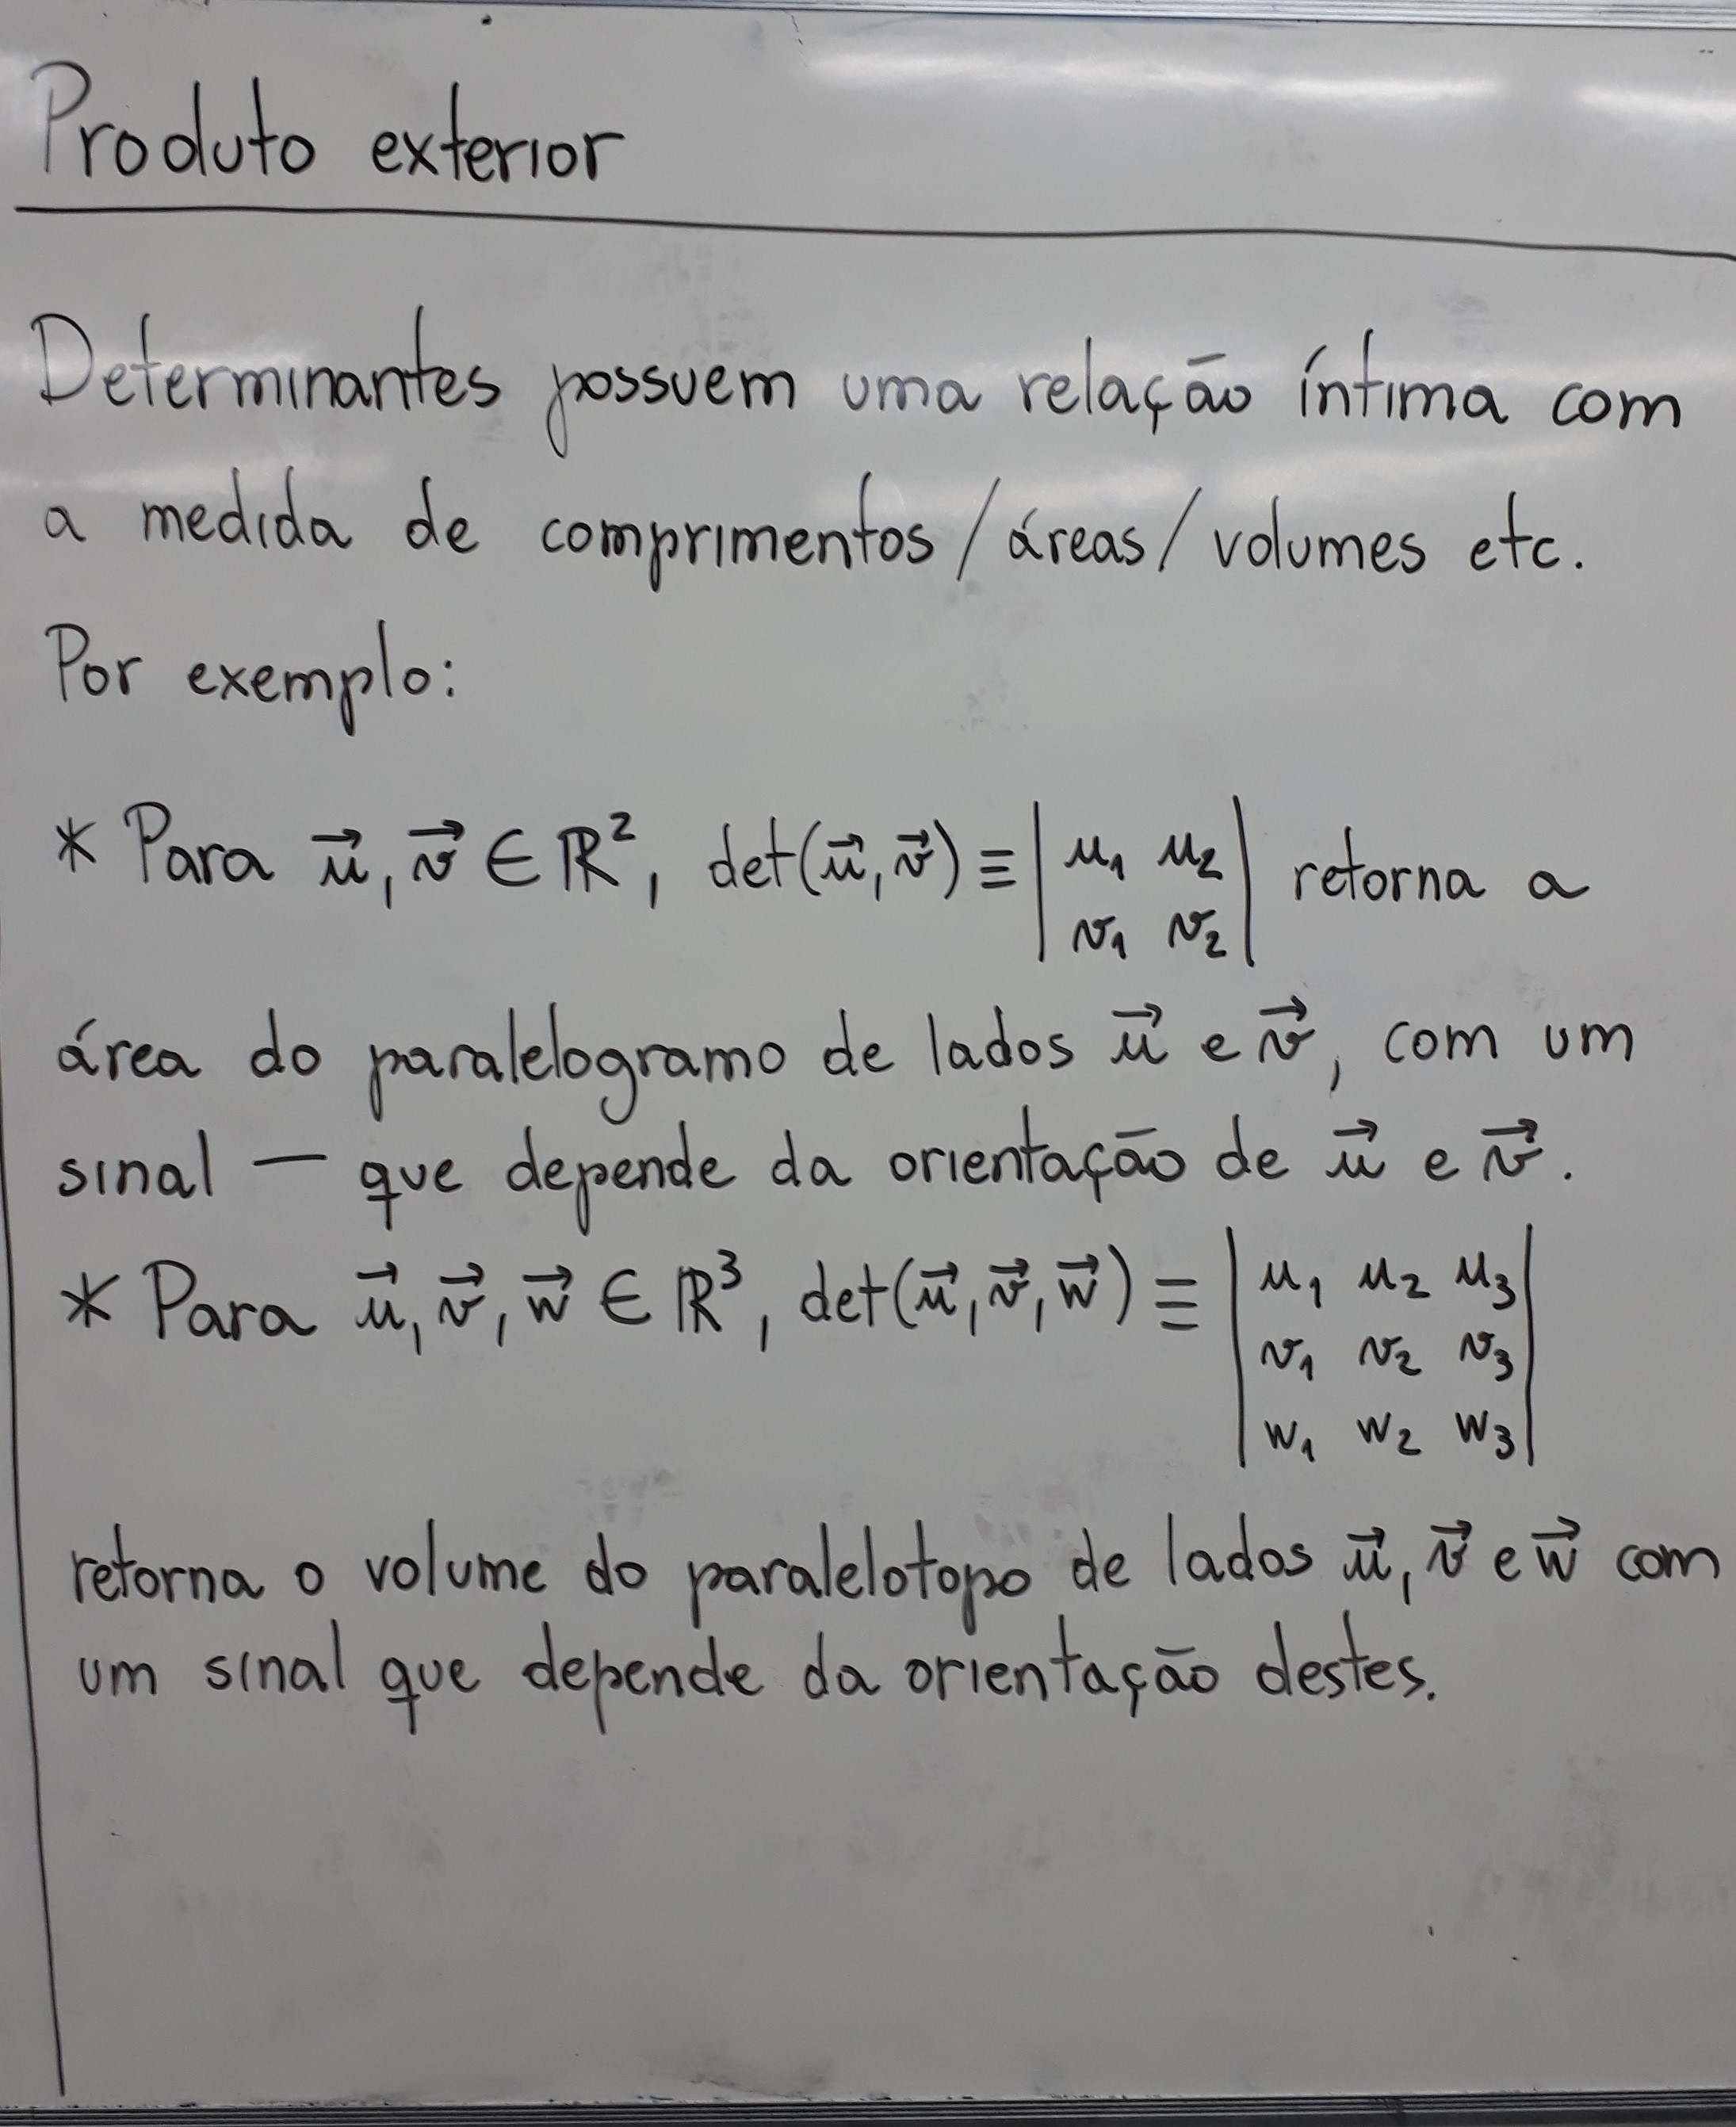 Produto exterior
Determinantes possuem uma relação íntima com
a medida de comprimentos/áreas/volumes etc.
Por exemplo:
* Para u⃗, v⃗ ∈ ℝ², det(u⃗, v⃗) ≡ | u₁ u₂ | retorna a
| v₁ v₂ |
área do paralelogramo de lados u⃗ e v⃗, com um
sinal — que depende da orientação de u⃗ e v⃗.
* Para u⃗, v⃗, w⃗ ∈ ℝ³, det(u⃗, v⃗, w⃗) ≡ | u₁ u₂ u₃ |
| v₁ v₂ v₃ |
| w₁ w₂ w₃ |
retorna o volume do paralelotopo de lados u⃗, v⃗ e w⃗ com
um sinal que depende da orientação destes.